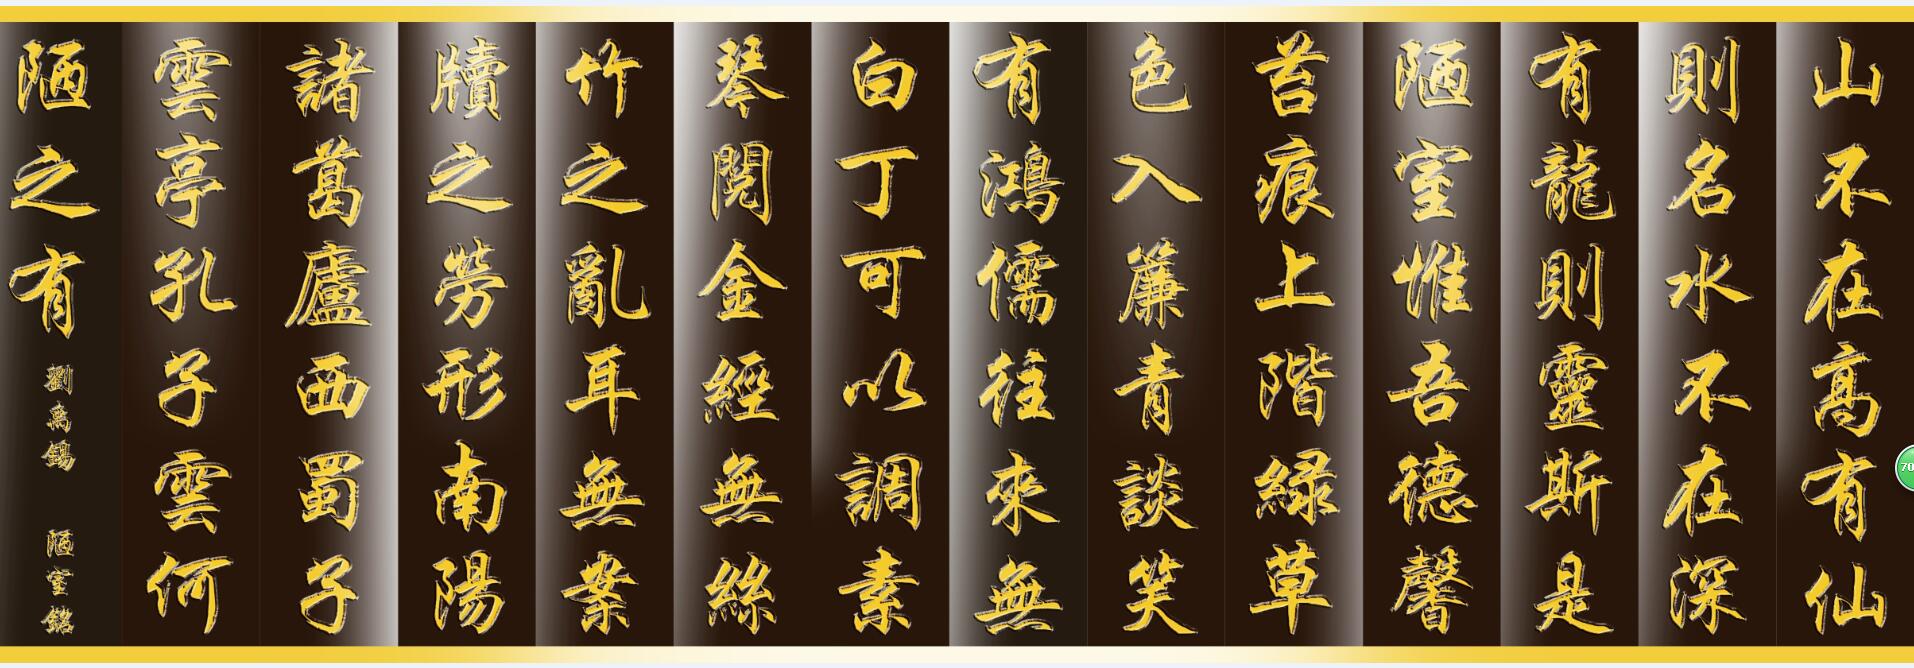 山不在高有仙
則名水不在深
有龍則靈斯是
陋室惟吾德馨
苔痕上階緑草
色入簾青談笑
有鴻儒往來無
白丁可以調素
琴閱金經無絲
竹之亂耳無案
牘之勞形南陽
諸葛廬西蜀子
雲亭孔子雲何
陋之有
劉禹錫 陋室銘
70